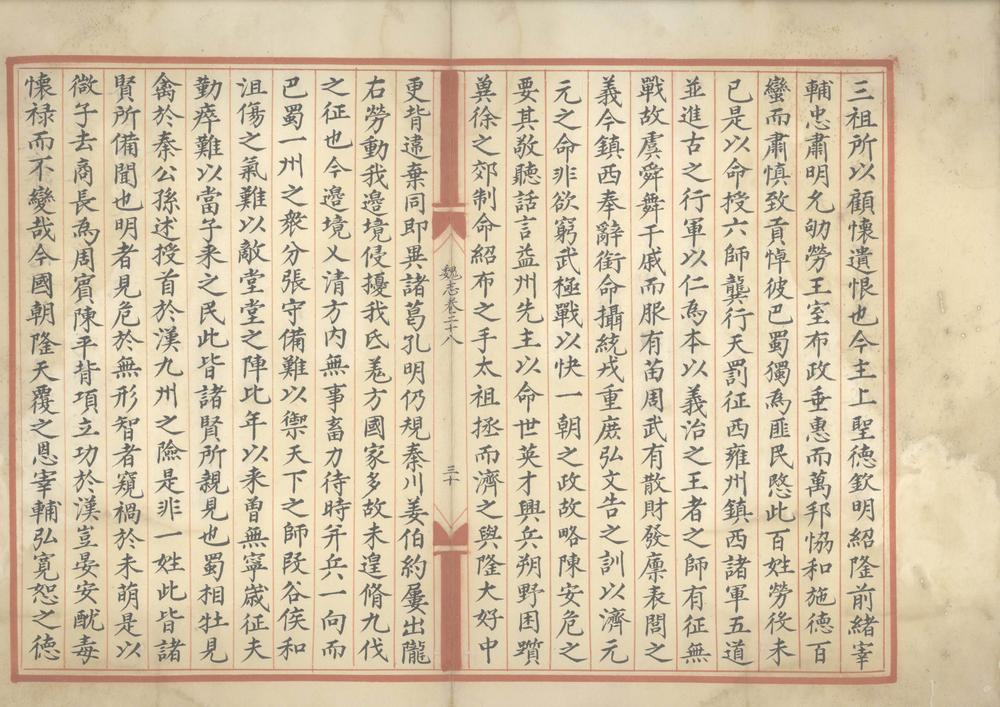 三祖所以顧懷遺恨也今主上聖德欽明紹隆前緒宰
輔忠肅明允劬勞王室布政垂惠而萬邦恊和施德百
蠻而肅慎致貢悼彼巴蜀獨為匪民愍此百姓勞役未
已是以命授六師龔行天罰征西雍州鎮西諸軍五道
並進古之行軍以仁為本以義治之王者之師有征無
戰故虞舜舞干戚而服有苗周武有散財發廪表閭之
義今鎮西奉辭銜命攝統戎重庶弘文告之訓以濟元
元之命非欲窮武極戰以快一朝之政故略陳安危之
要其敬聽話言益州先主以命世英才興兵朔野困躓
兾徐之郊制命紹布之手太祖拯而濟之與隆大好中
魏志卷二十八
三十
更背違棄同即異諸葛孔明仍規秦川姜伯約屢出隴
右勞動我邊境侵擾我氐羌方國家多故未遑脩九伐
之征也今邊境乂清方内無事畜力待時并兵一向而
巴蜀一州之衆分張守備難以禦天下之師段谷侯和
沮傷之氣難以敵堂堂之陣比年以来曽無寧歳征夫
勤瘁難以當子来之民此皆諸賢所親見也蜀相牡見
禽於秦公孫述授首於漢九州之險是非一姓此皆諸
賢所備聞也明者見危於無形智者窺禍於未萌是以
微子去商長為周賓陳平背項立功於漢豈晏安酖毒
懷禄而不變哉今國朝隆天覆之恩宰輔弘寛恕之德